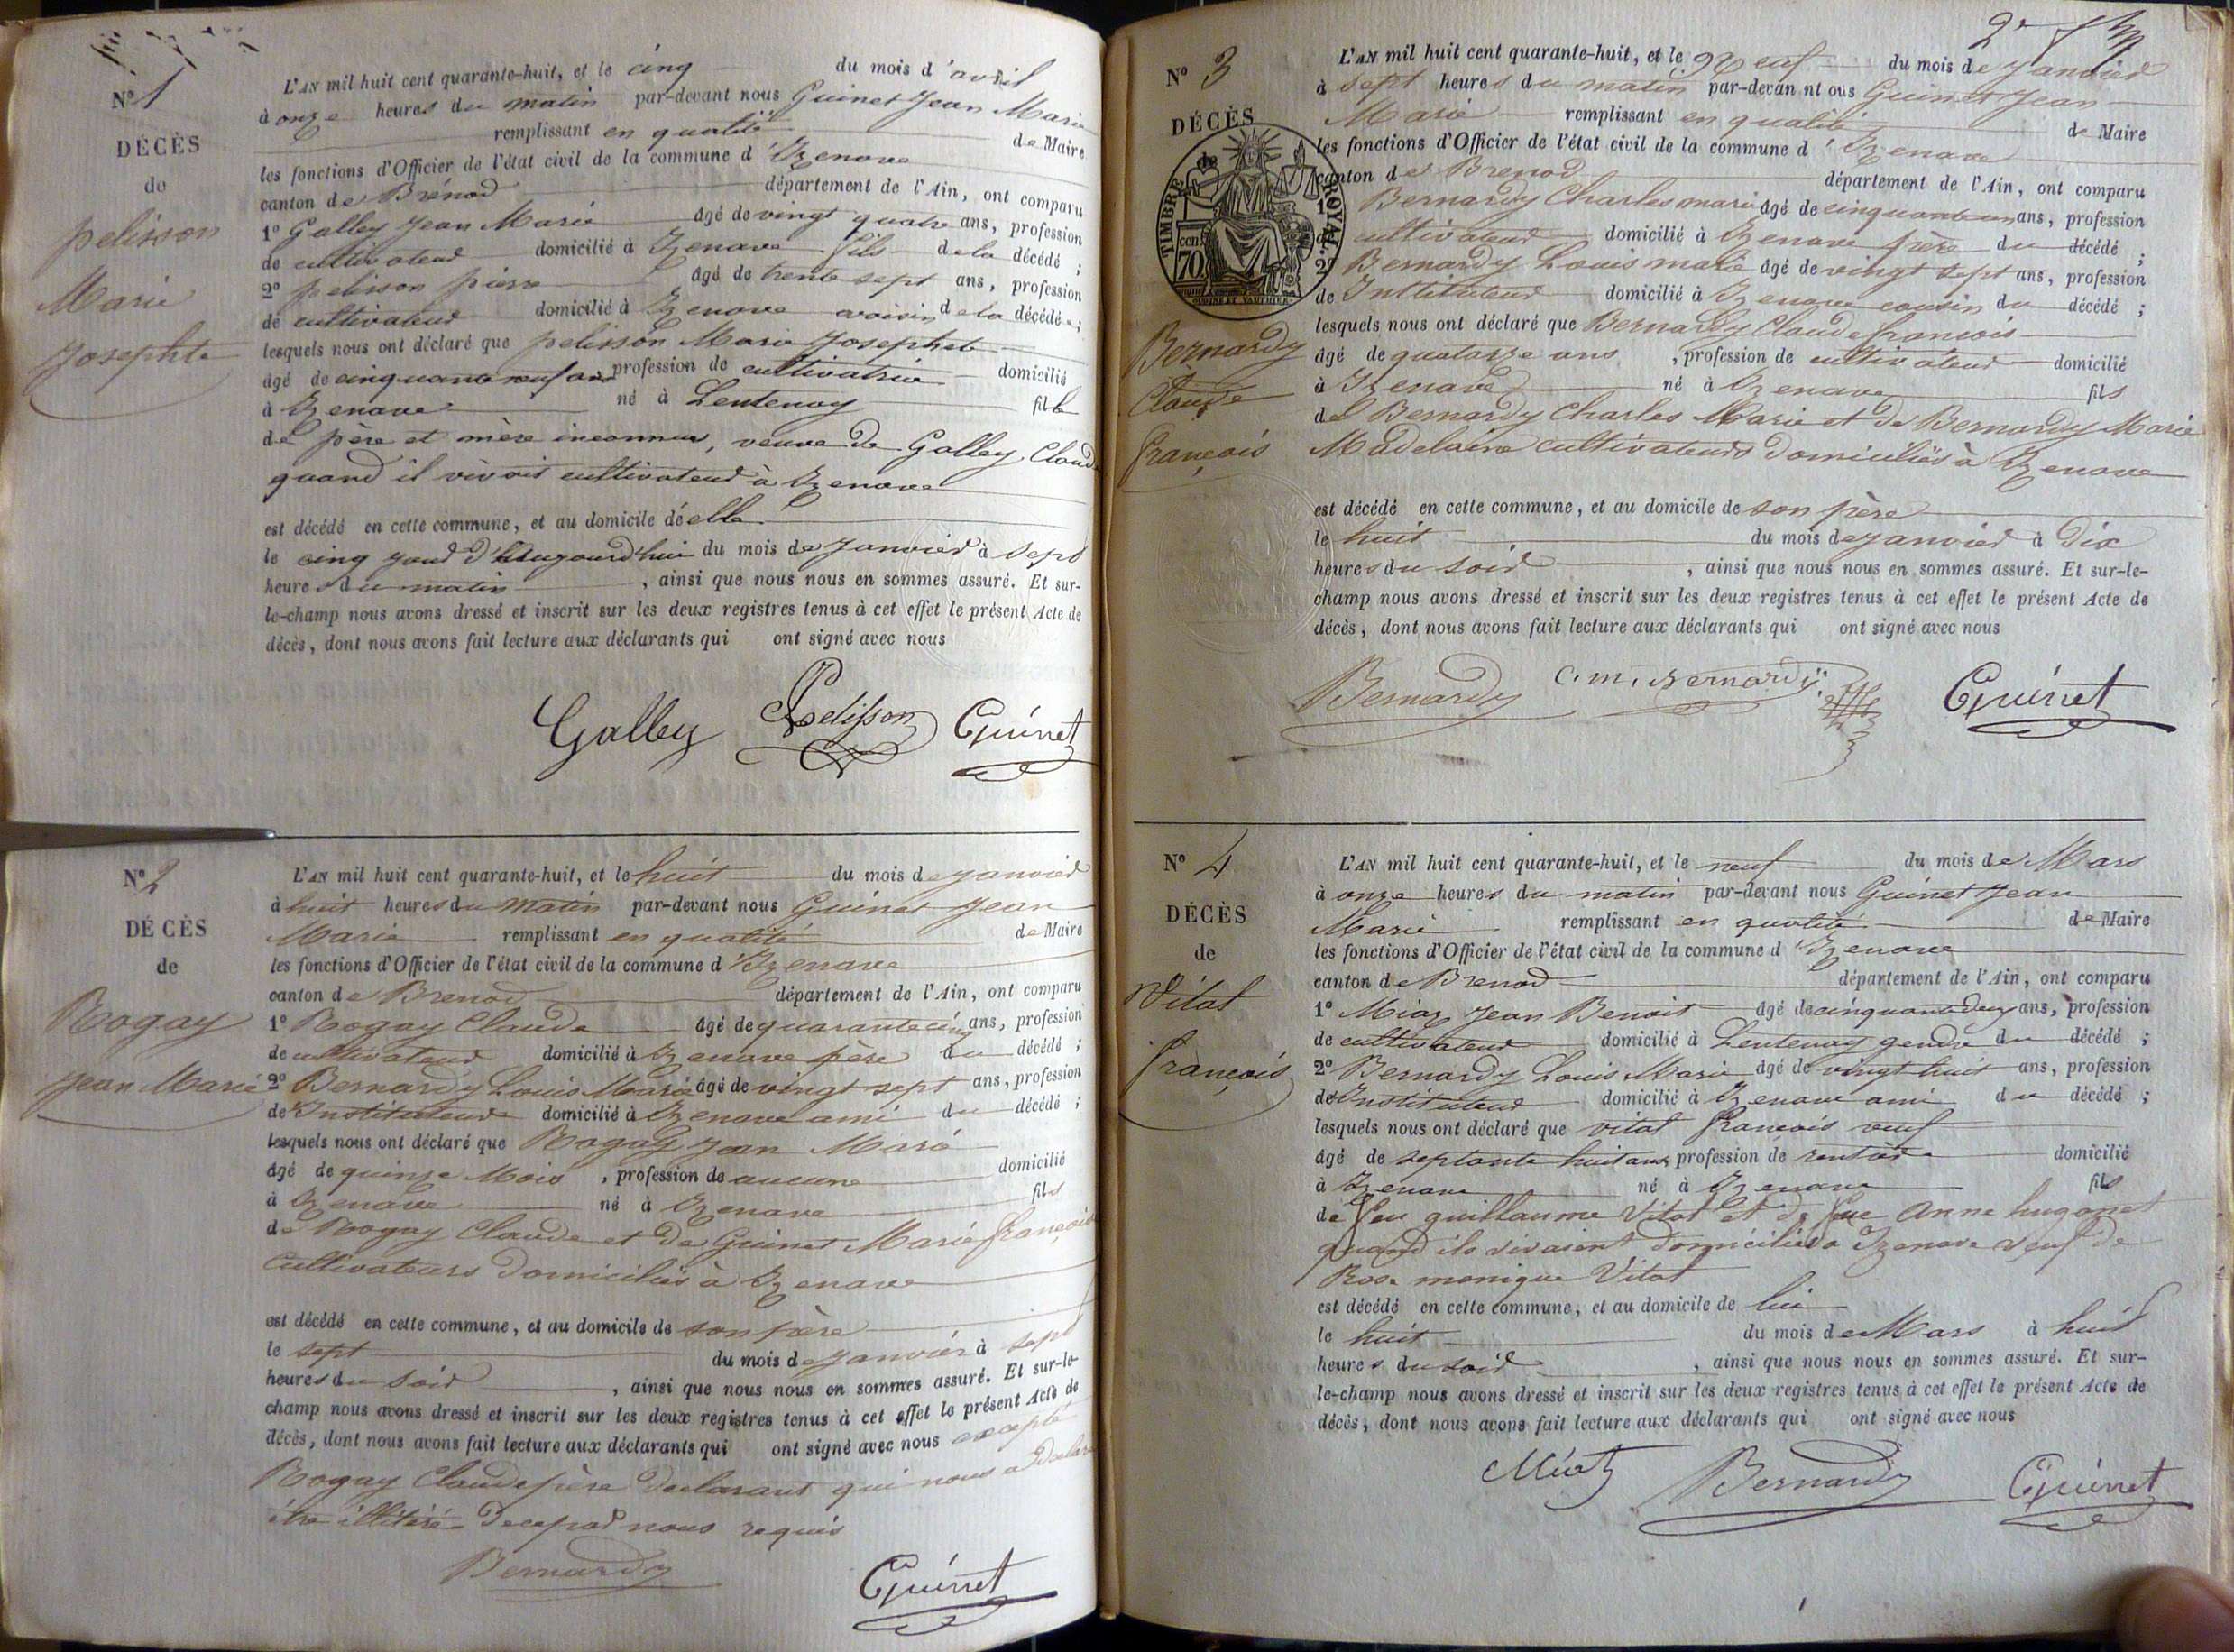 N° 1
DÉCÈS
de
pelisson
Marie
Josephte
L'AN mil huit cent quarante-huit, et le cinq du mois d'avril
à onze heures du matin par-devant nous Guinet Jean Marie
remplissant en qualité de Maire
les fonctions d'Officier de l'état civil de la commune d'Izenave
canton de Brénod département de l'Ain, ont comparu
1° Galley Jean Marie âgé de vingt quatre ans, profession
de cultivateur domicilié à Izenave fils de la décédé ;
2° pelisson pierre âgé de trente sept ans, profession
de cultivateur domicilié à Izenave voisin de la décédée ;
lesquels nous ont déclaré que pelisson Marie Josephte
âgé de cinquante neuf ans profession de cultivatrice domicilié
à Izenave né à Lentenay fille
de père et mère inconnus, veuve de Galley Claude
quand il vivoit cultivateur à Izenave
est décédé en cette commune, et au domicile de elle
le cinq jour d'aujourd'hui du mois de janvier à sept
heures du matin, ainsi que nous nous en sommes assuré. Et sur-
le-champ nous avons dressé et inscrit sur les deux registres tenus à cet effet le présent Acte de
décès, dont nous avons fait lecture aux déclarants qui ont signé avec nous
Galley Pelisson Guinet
N° 2
DÉCÈS
de
Rogay
Jean Marie
L'AN mil huit cent quarante-huit, et le huit du mois de janvier
à huit heures du matin par-devant nous Guinet Jean
Marie remplissant en qualité de Maire
les fonctions d'Officier de l'état civil de la commune d'Izenave
canton de Brenod département de l'Ain, ont comparu
1° Rogay Claude âgé de quarante cinq ans, profession
de cultivateur domicilié à Izenave père du décédé ;
2° Bernardy Louis Marie âgé de vingt sept ans, profession
de Instituteur domicilié à Izenave ami du décédé ;
lesquels nous ont déclaré que Rogay Jean Marie
âgé de quinze Mois, profession de aucune domicilié
à Izenave né à Izenave fils
de Rogay Claude et de Guinet Marie françoise
Cultivateurs domiciliés à Izenave
est décédé en cette commune, et au domicile de son père
le sept du mois de janvier à sept
heures du soir, ainsi que nous nous en sommes assuré. Et sur-le-
champ nous avons dressé et inscrit sur les deux registres tenus à cet effet le présent Acte de
décès, dont nous avons fait lecture aux déclarants qui ont signé avec nous excepté
Rogay Claude père declarant qui nous a declaré
être illitéré de ce par nous requis
Bernardy Guinet
N° 3
DÉCÈS
de
TIMBRE ROYAL
cen. 70
Bernardy
Claude
françois
L'AN mil huit cent quarante-huit, et le Neuf du mois de janvier
à sept heures du matin par-devan nt ous Guinet Jean
Marie remplissant en qualité de Maire
les fonctions d'Officier de l'état civil de la commune d'Izenave
canton de Brenod département de l'Ain, ont comparu
1° Bernardy Charles marie âgé de cinquante un ans, profession
de cultivateur domicilié à Izenave père du décédé ;
2° Bernardy Louis marie âgé de vingt sept ans, profession
de Instituteur domicilié à Izenave cousin du décédé ;
lesquels nous ont déclaré que Bernardy Claude françois
âgé de quatorze ans, profession de cultivateur domicilié
à Izenave né à Izenave fils
de Bernardy Charles Marie et de Bernardy Marie
Madelaine cultivateurs domiciliés à Izenave
est décédé en cette commune, et au domicile de son père
le huit du mois de janvier à dix
heures du soir, ainsi que nous nous en sommes assuré. Et sur-le-
champ nous avons dressé et inscrit sur les deux registres tenus à cet effet le présent Acte de
décès, dont nous avons fait lecture aux déclarants qui ont signé avec nous
Bernardy C. m. Bernardy Guinet
N° 4
DÉCÈS
de
Vitat
françois
L'AN mil huit cent quarante-huit, et le neuf du mois de Mars
à onze heures du matin par-devant nous Guinet Jean
Marie remplissant en qualité de Maire
les fonctions d'Officier de l'état civil de la commune d'Izenave
canton de Brenod département de l'Ain, ont comparu
1° Miaz Jean Benoit âgé de cinquante deux ans, profession
de cultivateur domicilié à Lentenay gendre du décédé ;
2° Bernardy Louis Marie âgé de vingt huit ans, profession
de Instituteur domicilié à Izenave ami du décédé ;
lesquels nous ont déclaré que vitat françois veuf
âgé de septante huit ans profession de rentier domicilié
à Izenave né à Izenave fils
de feu guillaume Vitat et de feue Anne hugonet
quand ils vivaient domiciliés à Izenave veuf de
Rose monique Vitat
est décédé en cette commune, et au domicile de lui
le huit du mois de Mars à huit
heures du soir, ainsi que nous nous en sommes assuré. Et sur-
le-champ nous avons dressé et inscrit sur les deux registres tenus à cet effet le présent Acte de
décès, dont nous avons fait lecture aux déclarants qui ont signé avec nous
Miaz Bernardy Guinet